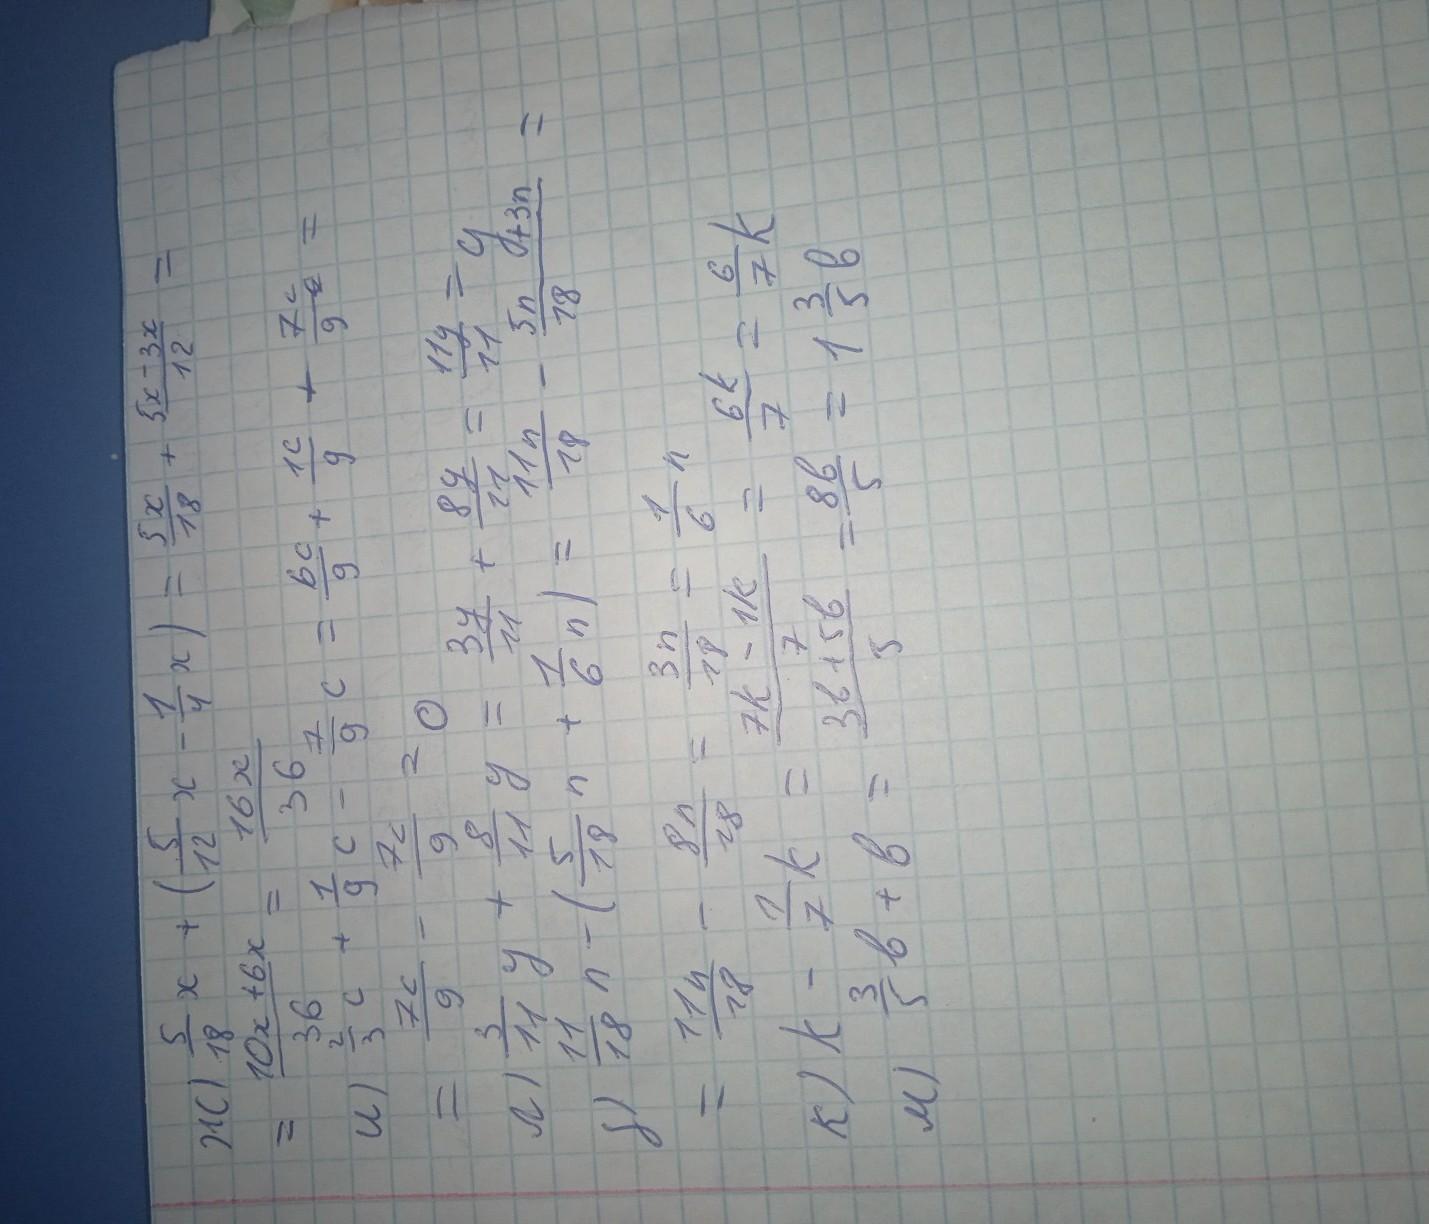 ж) 5/18 x + (5/12 x - 1/4 x) = 5x/18 + 5x-3x/12 =
= 10x+6x/36 = 16x/36
и) 2/3 c + 1/9 c - 7/9 c = 6c/9 + 1c/9 + 7c/9 =
= 7c/9 - 7c/9 = 0
л) 3/11 y + 8/11 y = 3y/11 + 8y/11 = 11y/11 = y
з) 11/18 n - (5/18 n + 1/6 n) = 11n/18 - 5n+3n/18 =
= 11n/18 - 8n/18 = 3n/18 = 1/6 n
к) k - 1/7 k = 7k-1k/7 = 6k/7 = 6/7 k
м) 3/5 b + b = 3b+5b/5 = 8b/5 = 1 3/5 b